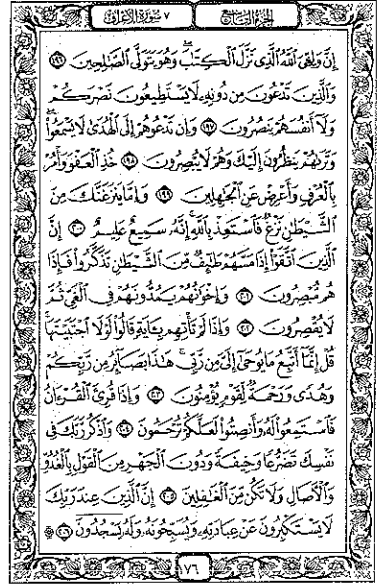 ٧ سُورَةُ الْأَعْرَافِ الجُزءُ التَّاسِعُ
إِنَّ وَلِـِّۧيَ ٱللَّهُ ٱلَّذِى نَزَّلَ ٱلْكِتَـٰبَ ۖ وَهُوَ يَتَوَلَّى ٱلصَّـٰلِحِينَ ١٩٦
وَٱلَّذِينَ تَدْعُونَ مِن دُونِهِۦ لَا يَسْتَطِيعُونَ نَصْرَكُمْ
وَلَآ أَنفُسَهُمْ يَنصُرُونَ ١٩٧ وَإِن تَدْعُوهُمْ إِلَى ٱلْهُدَىٰ لَا يَسْمَعُوا۟ ۖ
وَتَرَىٰهُمْ يَنظُرُونَ إِلَيْكَ وَهُمْ لَا يُبْصِرُونَ ١٩٨ خُذِ ٱلْعَفْوَ وَأْمُرْ
بِٱلْعُرْفِ وَأَعْرِضْ عَنِ ٱلْجَـٰهِلِينَ ١٩٩ وَإِمَّا يَنزَغَنَّكَ مِنَ
ٱلشَّيْطَـٰنِ نَزْغٌ فَٱسْتَعِذْ بِٱللَّهِ ۚ إِنَّهُۥ سَمِيعٌ عَلِيمٌ ٢٠٠ إِنَّ
ٱلَّذِينَ ٱتَّقَوْا۟ إِذَا مَسَّهُمْ طَـٰٓئِفٌ مِّنَ ٱلشَّيْطَـٰنِ تَذَكَّرُوا۟ فَإِذَا
هُم مُّبْصِرُونَ ٢٠١ وَإِخْوَٰنُهُمْ يَمُدُّونَهُمْ فِى ٱلْغَىِّ ثُمَّ
لَا يُقْصِرُونَ ٢٠٢ وَإِذَا لَمْ تَأْتِهِم بِـَٔايَةٍ قَالُوا۟ لَوْلَا ٱجْتَبَيْتَهَا ۚ
قُلْ إِنَّمَآ أَتَّبِعُ مَا يُوحَىٰٓ إِلَىَّ مِن رَّبِّى ۚ هَـٰذَا بَصَآئِرُ مِن رَّبِّكُمْ
وَهُدًى وَرَحْمَةٌ لِّقَوْمٍ يُؤْمِنُونَ ٢٠٣ وَإِذَا قُرِئَ ٱلْقُرْءَانُ
فَٱسْتَمِعُوا۟ لَهُۥ وَأَنصِتُوا۟ لَعَلَّكُمْ تُرْحَمُونَ ٢٠٤ وَٱذْكُر رَّبَّكَ فِى
نَفْسِكَ تَضَرُّعًا وَخِيفَةً وَدُونَ ٱلْجَهْرِ مِنَ ٱلْقَوْلِ بِٱلْغُدُوِّ
وَٱلْـَٔاصَالِ وَلَا تَكُن مِّنَ ٱلْغَـٰفِلِينَ ٢٠٥ إِنَّ ٱلَّذِينَ عِندَ رَبِّكَ
لَا يَسْتَكْبِرُونَ عَنْ عِبَادَتِهِۦ وَيُسَبِّحُونَهُۥ وَلَهُۥ يَسْجُدُونَ ۩ ٢٠٦
١٧٦